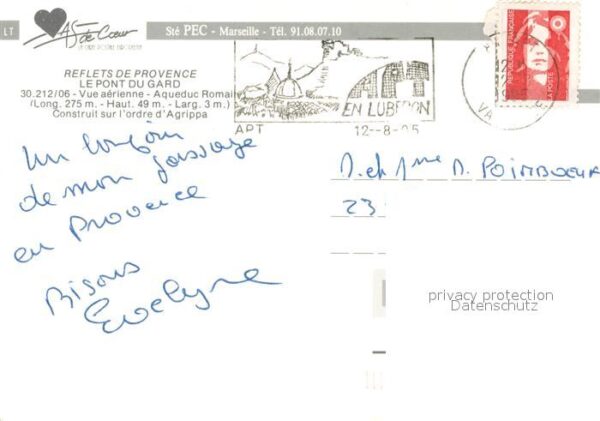 LT
AS de Cœur
Sté PEC - Marseille - Tél. 91.08.07.10
REPUBLIQUE FRANÇAISE
LA POSTE
REFLETS DE PROVENCE
LE PONT DU GARD
30.212/06 - Vue aérienne - Aqueduc Romain
(Long. 275 m. - Haut. 49 m. - Larg. 3 m.)
Construit sur l'ordre d'Agrippa
EN LUBERON
APT
12-8-95
Un bonjour
de mon passage
en Provence
Bisous
Evelyne
M. et Mme D. POIMBOEUF
23
privacy protection
Datenschutz